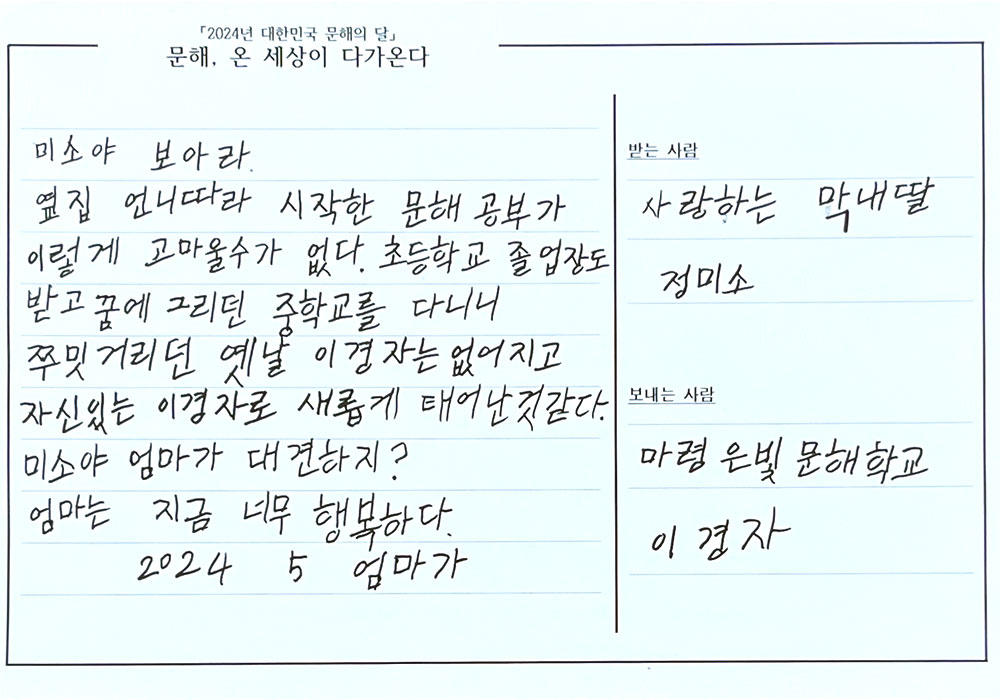 「2024년 대한민국 문해의 달」
문해, 온 세상이 다가온다
미소야 보아라.
옆집 언니따라 시작한 문해 공부가
이렇게 고마울수가 없다. 초등학교 졸업장도
받고 꿈에 그리던 중학교를 다니니
쭈밋거리던 옛날 이경자는 없어지고
자신있는 이경자로 새롭게 태어난것같다.
미소야 엄마가 대견하지?
엄마는 지금 너무 행복하다.
2024 5 엄마가
받는 사람
사랑하는 막내딸
정미소
보내는 사람
마령 은빛 문해학교
이경자